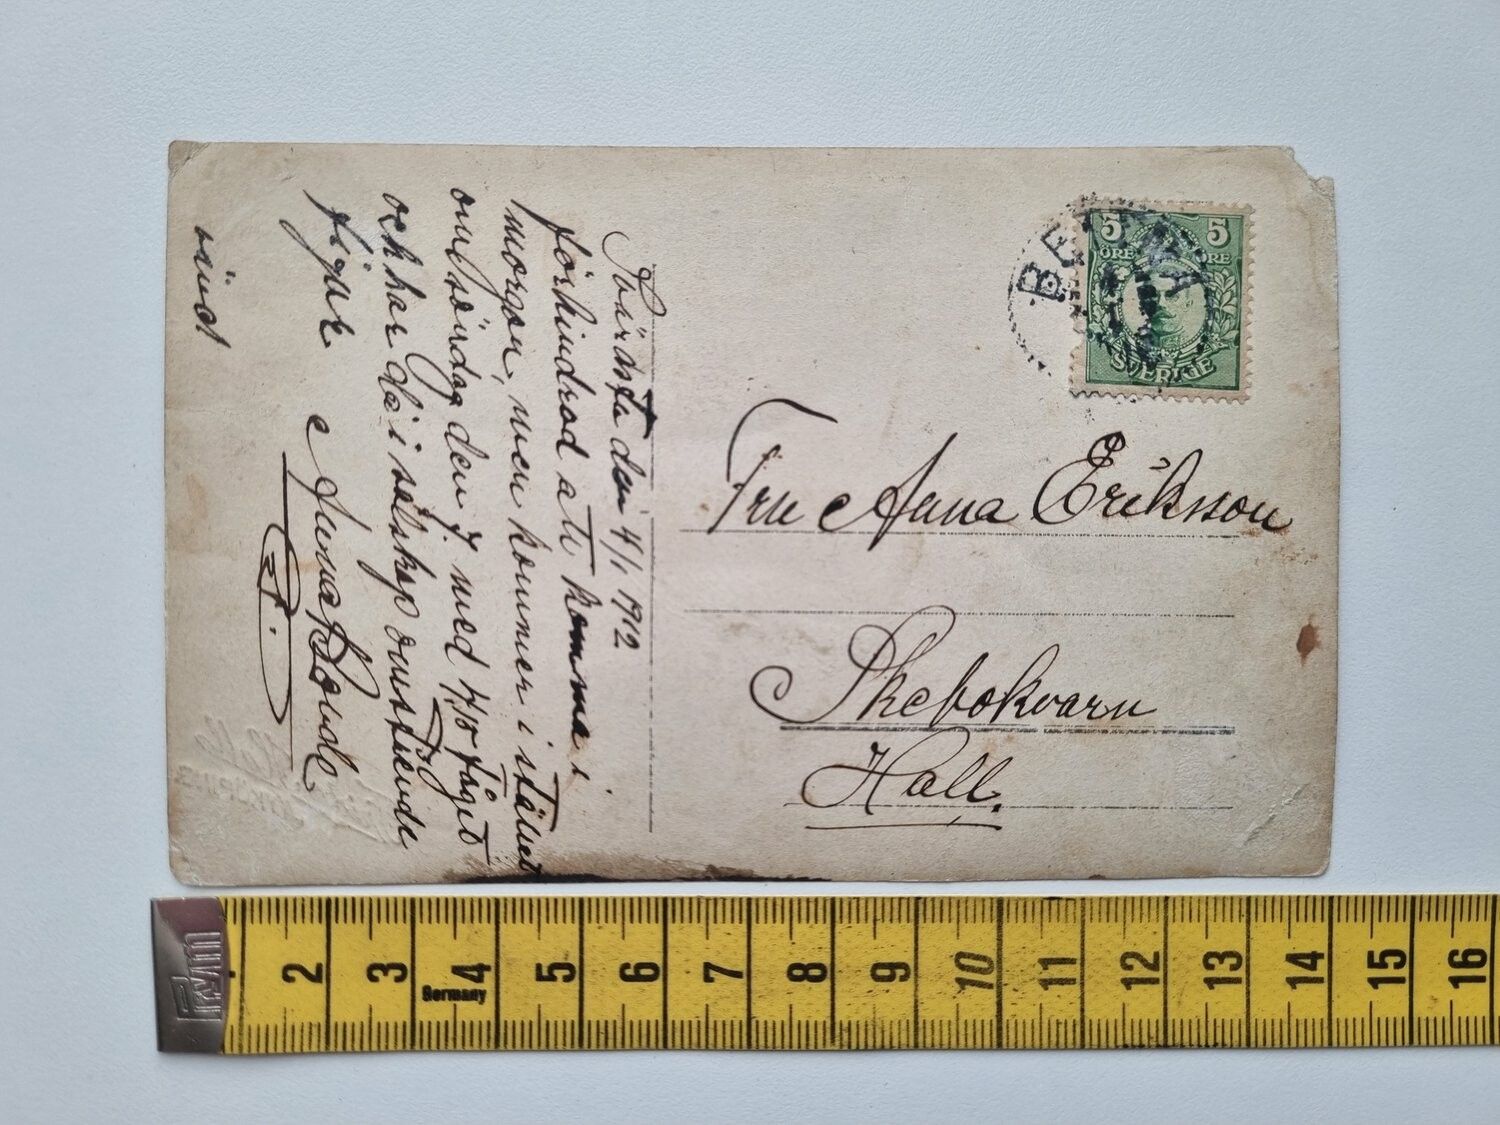 Svärdsta den 4/1 1912
förhindrad att komma i
morgon, men kommer i stället
om söndag den 7 med 4,10 tåget
och har då i sällskap omstående
figur
Anna
vänd
5 5
ÖRE ÖRE
SVERIGE
Fru Anna Eriksson
Skebokvarn
Hall.
Prym
2 3 4 5 6 7 8 9 10 11 12 13 14 15 16
Germany